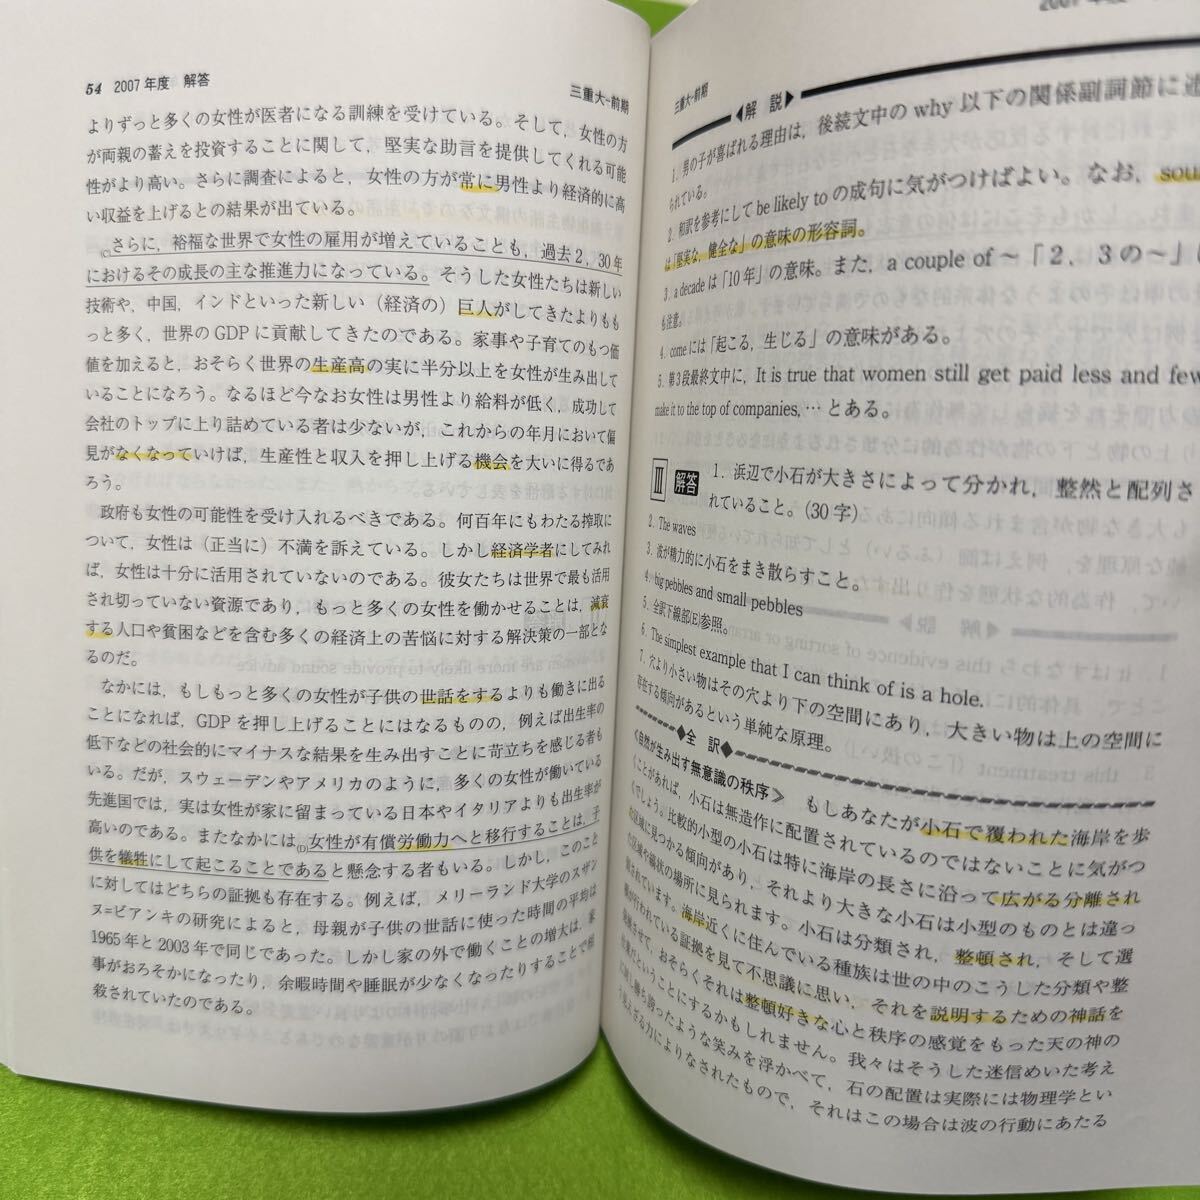 54 2007年度 解答
三重大-前期
よりずっと多くの女性が医者になる訓練を受けている。そして，女性の方
が両親の蓄えを投資することに関して，堅実な助言を提供してくれる可能
性がより高い。さらに調査によると，女性の方が常に男性より経済的に高
い収益を上げるとの結果が出ている。
(C)さらに，裕福な世界で女性の雇用が増えていることも，過去2，30年
におけるその成長の主な推進力になっている。そうした女性たちは新しい
技術や，中国，インドといった新しい（経済の）巨人がしてきたよりもも
っと多く，世界のGDPに貢献してきたのである。家事や子育てのもつ価
値を加えると，おそらく世界の生産高の実に半分以上を女性が生み出して
いることになろう。なるほど今なお女性は男性より給料が低く，成功して
会社のトップに上り詰めている者は少ないが，これからの年月において偏
見がなくなっていけば，生産性と収入を押し上げる機会を大いに得るであ
ろう。
政府も女性の可能性を受け入れるべきである。何百年にもわたる搾取に
ついて，女性は（正当に）不満を訴えている。しかし経済学者にしてみれ
ば，女性は十分に活用されていないのである。彼女たちは世界で最も活用
され切っていない資源であり，もっと多くの女性を働かせることは，減衰
する人口や貧困などを含む多くの経済上の苦悩に対する解決策の一部とな
るのだ。
なかには，もしもっと多くの女性が子供の世話をするよりも働きに出る
ことになれば，GDPを押し上げることにはなるものの，例えば出生率の
低下などの社会的にマイナスな結果を生み出すことに苛立ちを感じる者も
いる。だが，スウェーデンやアメリカのように，多くの女性が働いている
先進国では，実は女性が家に留まっている日本やイタリアよりも出生率が
高いのである。またなかには(D)女性が有償労働力へと移行することは，子
供を犠牲にして起こることであると懸念する者もいる。しかし，このこと
に対してはどちらの証拠も存在する。例えば，メリーランド大学のスザン
ヌ=ビアンキの研究によると，母親が子供の世話に使った時間の平均は
1965年と2003年で同じであった。しかし家の外で働くことの増大は，家
事がおろそかになったり，余暇時間や睡眠が少なくなったりすることで相
殺されていたのである。
三重大-前期
◀解 説▶
1．男の子が喜ばれる理由は，後続文中のwhy以下の関係副詞節に述
られている。
2．和訳を参考にしてbe likely toの成句に気がつけばよい。なお，soun
は「堅実な，健全な」の意味の形容詞。
3．a decadeは「10年」の意味。また，a couple of ～「2，3の～」に
も注意。
4．comeには「起こる，生じる」の意味がある。
5．第3段最終文中に，It is true that women still get paid less and few
make it to the top of companies, … とある。
Ⅲ 解答 1．浜辺で小石が大きさによって分かれ，整然と配列さ
れていること。(30字)
2. The waves
3．波が精力的に小石をまき散らすこと。
4．big pebbles and small pebbles
5．全訳下線部(E)参照。
6．The simplest example that I can think of is a hole.
7．穴より小さい物はその穴より下の空間にあり，大きい物は上の空間に
存在する傾向があるという単純な原理。
◆全 訳◆
≪自然が生み出す無意識の秩序≫
もしあなたが小石で覆われた海岸を歩
くことがあれば，小石は無造作に配置されているのではないことに気がつ
くでしょう。比較的小型の小石は特に海岸の長さに沿って広がる分離され
た区域に見つかる傾向があり，それより大きな小石は小型のものとは違っ
た区域や縞状の場所に見られます。小石は分類され，整頓され，そして選
別されています。海岸近くに住んでいる種族は世の中のこうした分類や整
頓が行われている証拠を見て不思議に思い，それを説明するための神話を
発展させて，おそらくそれは整頓好きな心と秩序の感覚をもった天の神の
仕業だということにするかもしれません。我々はそうした迷信めいた考え
に勝ち誇ったような笑みを浮かべて，石の配置は実際には物理学とい
う見えざる力によりなされたもので，それはこの場合は波の行動にあたる